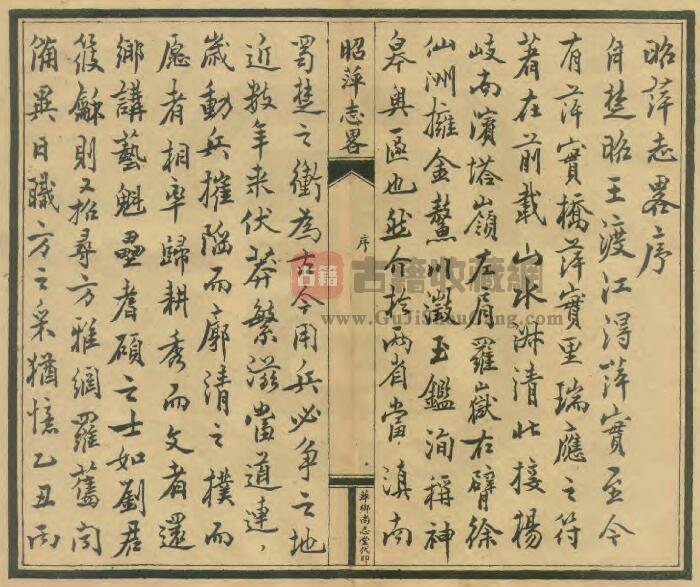 昭萍志畧序
自楚昭王渡江得萍實至今
有萍實橋萍實里瑞應之符
著在前載山水洙清北接楊
岐南濱塔嶺左肩羅嶽右臂徐
仙洲擁金鰲川瀲玉鑑洵稱神
皋奧區也然介於兩省當滇南
昭萍志畧
序
萍鄉尚志堂代印
蜀楚之衝為古今用兵必爭之地
近数年来伏莽繁滋當道連〻
歲動兵摧陷而廓清之樸而
愿者相率歸耕秀而文者還
鄉講藝魁壘耆碩之士如劉君
筱龢則又招尋方雅網羅舊聞
備異日職方之采猶憶乙丑丙
古籍
古籍收藏網
www.GuJiShouCang.com